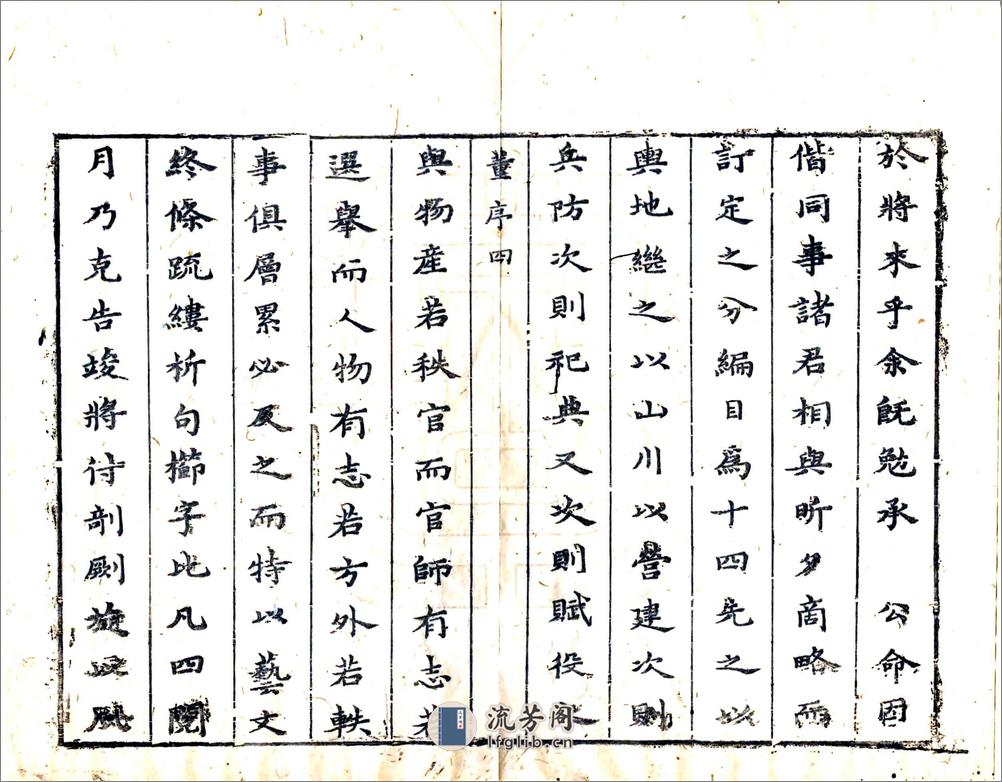 於將來乎余旣勉承　公命因
偕同事諸君相與昕夕商略而
訂定之分編目爲十四先之以
輿地繼之以山川以營建次則
兵防次則祀典又次則賦役
董序四
與物產若秩官而官師有志若
選舉而人物有志若方外若軼
事俱層累必及之而特以藝文
終條疏縷析句櫛字比凡四閱
月乃克告竣將付剞劂旋以
流芳阁
lfglib.cn